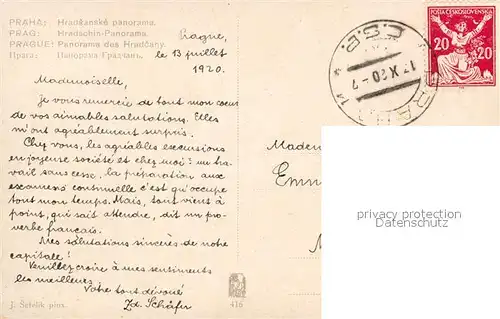 PRAHA: Hradčanské panorama.
PRAG: Hradschin-Panorama.
PRAGUE: Panorama des Hradčany.
Прага: Панорама Градчанъ.
Prague,
le 13 juillet
1920.
Mademoiselle,
Je vous remercie de tout mon coeur
de vos aimables salutations. Elles
m'ont agréablement surpris.
Chez vous, les agréables excursions
en joyeuse société et chez moi: un tra-
vail sans cesse, la préparation aux
examens continuelle c'est qu'occupe
tout mon temps. Mais, tout viens à
point, qui sait attendre, dit un pro-
verbe français.
Mes salutations sincères de notre
capitale!
Veuillez croire à mes sentiments
les meilleures.
Votre tout dévoué
Zd. Schäfer
J. Šetelík pinx.
416
POŠTA ČESKOSLOVENSKÁ
20 20
13.X.20-7
Madem
Emm
M
privacy protection
Datenschutz